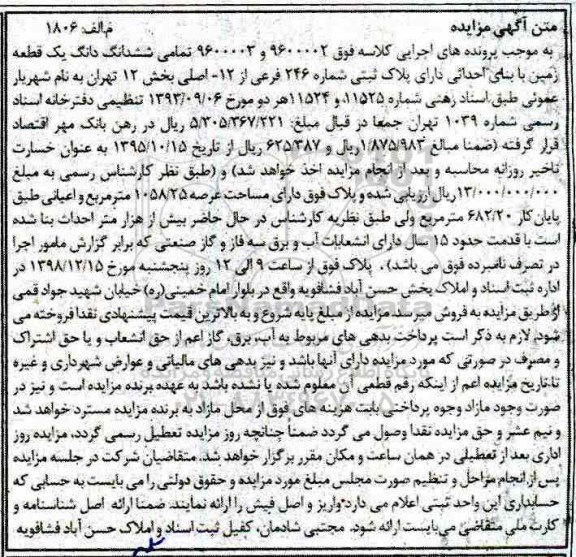 متن آگهی مزایده م‌الف: ۱۸۰۶
به موجب پرونده های اجرایی کلاسه فوق ۹۶۰۰۰۰۲ و ۹۶۰۰۰۰۳ تمامی ششدانگ دانگ یک قطعه
زمین با بنای احداثی دارای پلاک ثبتی شماره ۲۴۶ فرعی از ۱۲- اصلی بخش ۱۲ تهران به نام شهریار
عموئی طبق اسناد رهنی شماره ۱۱۵۲۵، و ۱۱۵۲۴هر دو مورخ ۱۳۹۳/۰۹/۰۶ تنظیمی دفترخانه اسناد
رسمی شماره ۱۰۳۹ تهران جمعا در قبال مبلغ: ۵/۳۰۵/۳۶۷/۲۲۱ ریال در رهن بانک مهر اقتصاد
قرار گرفته (ضمنا مبالغ ۱/۸۷۵/۹۸۳ریال و ۶۲۵/۳۸۷ ریال از تاریخ ۱۳۹۵/۱۰/۱۵ به عنوان خسارت
تاخیر روزانه محاسبه و بعد از انجام مزایده اخذ خواهد شد) و (طبق نظر کارشناس رسمی به مبلغ
۱۳/۰۰۰/۰۰۰/۰۰۰ریال ارزیابی شده و پلاک فوق دارای مساحت عرصه ۱۰۵۸/۲۵ مترمربع و اعیانی طبق
پایان کار ۶۸۲/۲۰ مترمربع ولی طبق نظریه کارشناس در حال حاضر بیش از هزار متر احداث بنا شده
است با قدمت حدود ۱۵ سال دارای انشعابات آب و برق سه فاز و گاز صنعتی که برابر گزارش مامور اجرا
در تصرف نامبرده فوق می باشد). پلاک فوق از ساعت ۹ الی ۱۲ روز پنجشنبه مورخ ۱۳۹۸/۱۲/۱۵ در
اداره ثبت اسناد و املاک بخش حسن آباد فشافویه واقع در بلوار امام خمینی(ره) خیابان شهید جواد قمی
از طریق مزایده به فروش میرسد. مزایده از مبلغ پایه شروع و به بالاترین قیمت پیشنهادی نقدا فروخته می
شود. لازم به ذکر است پرداخت بدهی های مربوط به آب، برق، گاز اعم از حق انشعاب و یا حق اشتراک
و مصرف در صورتی که مورد مزایده دارای آنها باشد و نیز بدهی های مالیاتی و عوارض شهرداری و غیره
تا تاریخ مزایده اعم از اینکه رقم قطعی آن معلوم شده یا نشده باشد به عهده برنده مزایده است و نیز در
صورت وجود مازاد وجوه پرداختی بابت هزینه های فوق از محل مازاد به برنده مزایده مسترد خواهد شد
و نیم عشر و حق مزایده نقدا وصول می گردد ضمنا چنانچه روز مزایده تعطیل رسمی گردد، مزایده روز
اداری بعد از تعطیلی در همان ساعت و مکان مقرر برگزار خواهد شد. متقاضیان شرکت در جلسه مزایده
پس از انجام مراحل و تنظیم صورت مجلس مبلغ مورد مزایده و حقوق دولتی را می بایست به حسابی که
حسابداری این واحد ثبتی اعلام می دارد واریز و اصل فیش را ارائه نمایند. ضمنا ارائه اصل شناسنامه و
کارت ملی متقاضی می‌بایست ارائه شود. مجتبی شادمان، کفیل ثبت اسناد و املاک حسن آباد فشافویه